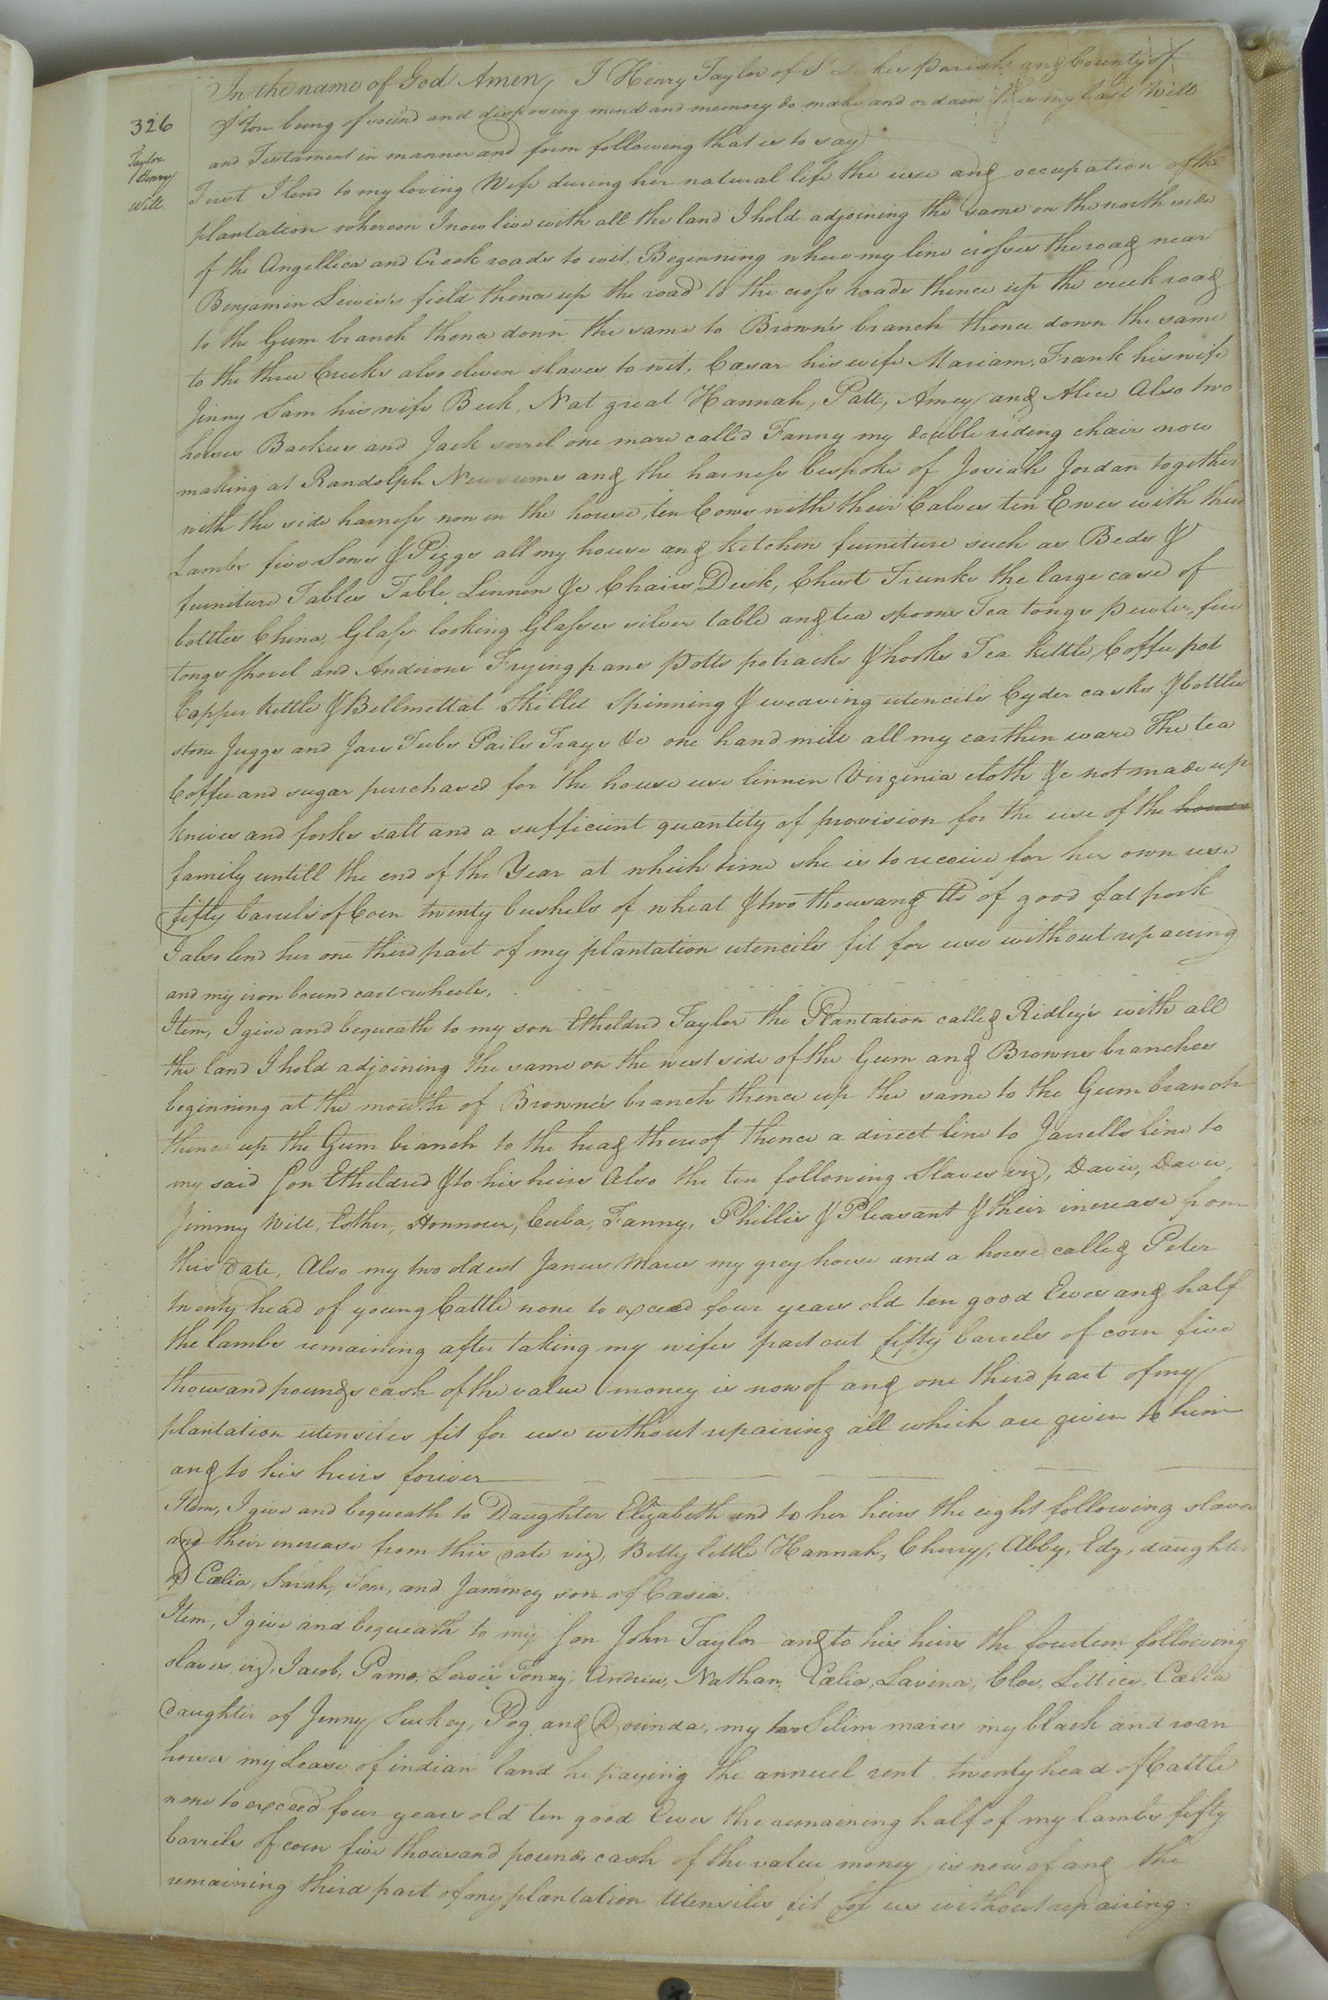 In the name of God Amen, I Henry Taylor of St Lukes parish and County of
326
S Ton being of sound and disposing mind and memory do make and ordain this my last Will
Taylor
Henry
Will
and Testament in manner and form following that is to say
First I lend to my loving Wife during her natural life the use and occupation of the
plantation whereon I now live with all the land I hold adjoining the same on the north side
of the Angellica and Creek roads to wit, Beginning where my line crosses the road near
Benjamin Lewis's field thence up the road to the cross roads thence up the creek road
to the Gum branch thence down the same to Brown's branch thence down the same
to the three Creeks also eleven slaves to wit, Cæsar his wife Mariam, Frank his wife
Jinny Sam his wife Beck, Nat great Hannah, Patt, Amey, and Alice Also two
horses Backus and Jack sorrel one mare called Fanny my double riding chair now
making at Randolph Newsums and the harness bespoke of Josiah Jordan together
with the side harness now in the house, ten Cows with their Calves ten Ewes with their
Lambs five Sows & Piggs all my house and kitchen furniture such as Beds &
furniture Tables Table Linnen &c Chairs Desk, Chest Trunks the large case of
bottles China, Glass looking Glasses silver table and tea spoons Tea tongs pewter, fire
tongs shovel and Andirons Frying pans potts potracks & hooks Tea kettle, Coffee pot
Copper kettle & Bellmettal Skillet Spinning & weaving utencils Cyder casks & bottles
stone Juggs and Jars Tubs Pails Trays &c one hand mill all my earthen ware The tea
Coffee and sugar purchased for the house use linnen Virginia cloth &c not made up
knives and forks salt and a sufficient quantity of provision for the use of the house
family untill the end of the Year at which time she is to receive for her own use
fifty barrels of Corn twenty bushels of wheat & two thousand lbs of good fat pork
I also lend her one third part of my plantation utencils fit for use without repairing
and my iron bound cart wheels,
Item, I give and bequeath to my son Etheldred Taylor the Plantation called Ridley's with all
the land I hold adjoining the same on the west side of the Gum and Browns branches
beginning at the mouth of Browne's branch thence up the same to the Gum branch
thence up the Gum branch to the head thereof thence a direct line to Jarrells line to
my said Son Etheldred & to his heirs Also the ten following Slaves viz, Davie, Dave,
Jimmy Will, Esther, Honnour, Cuba, Fanny, Phillis & Pleasant & their increase from
this date, Also my two oldest Janus Mares my grey horse and a horse called Peter
twenty head of young Cattle none to exceed four years old ten good Ewes and half
the lambs remaining after taking my wifes part out fifty barrels of corn five
thousand pounds cash of the value money is now of and one third part of my
plantation utensiles fit for use without repairing all which are given to him
and to his heirs forever
Item, I give and bequeath to Daughter Elizabeth and to her heirs the eight following slaves
and their increase from this date viz, Betty little Hannah, Cherry, Abby, Edy, daughter
of Cælia, Sarah, Tom, and Jammey son of Casia.
Item, I give and bequeath to my Son John Taylor and to his heirs the fourteen following
slaves viz, Jacob, Pams, Lewis, Tonny, Andrew, Nathan, Cælia, Lavina, Cloe, Lettice, Cælia
daughter of Jenny Suckey, Peg and Dorinda, my two Selim mares my black and roan
horses my Lease of indian land he paying the annuel rent twenty head of Cattle
none to exceed four years old ten good Ewes the remaining half of my lambs fifty
barrels of corn five thousand pounds cash of the value money is now of and the
remaining third part of my plantation Utensiles fit for use without repairing.